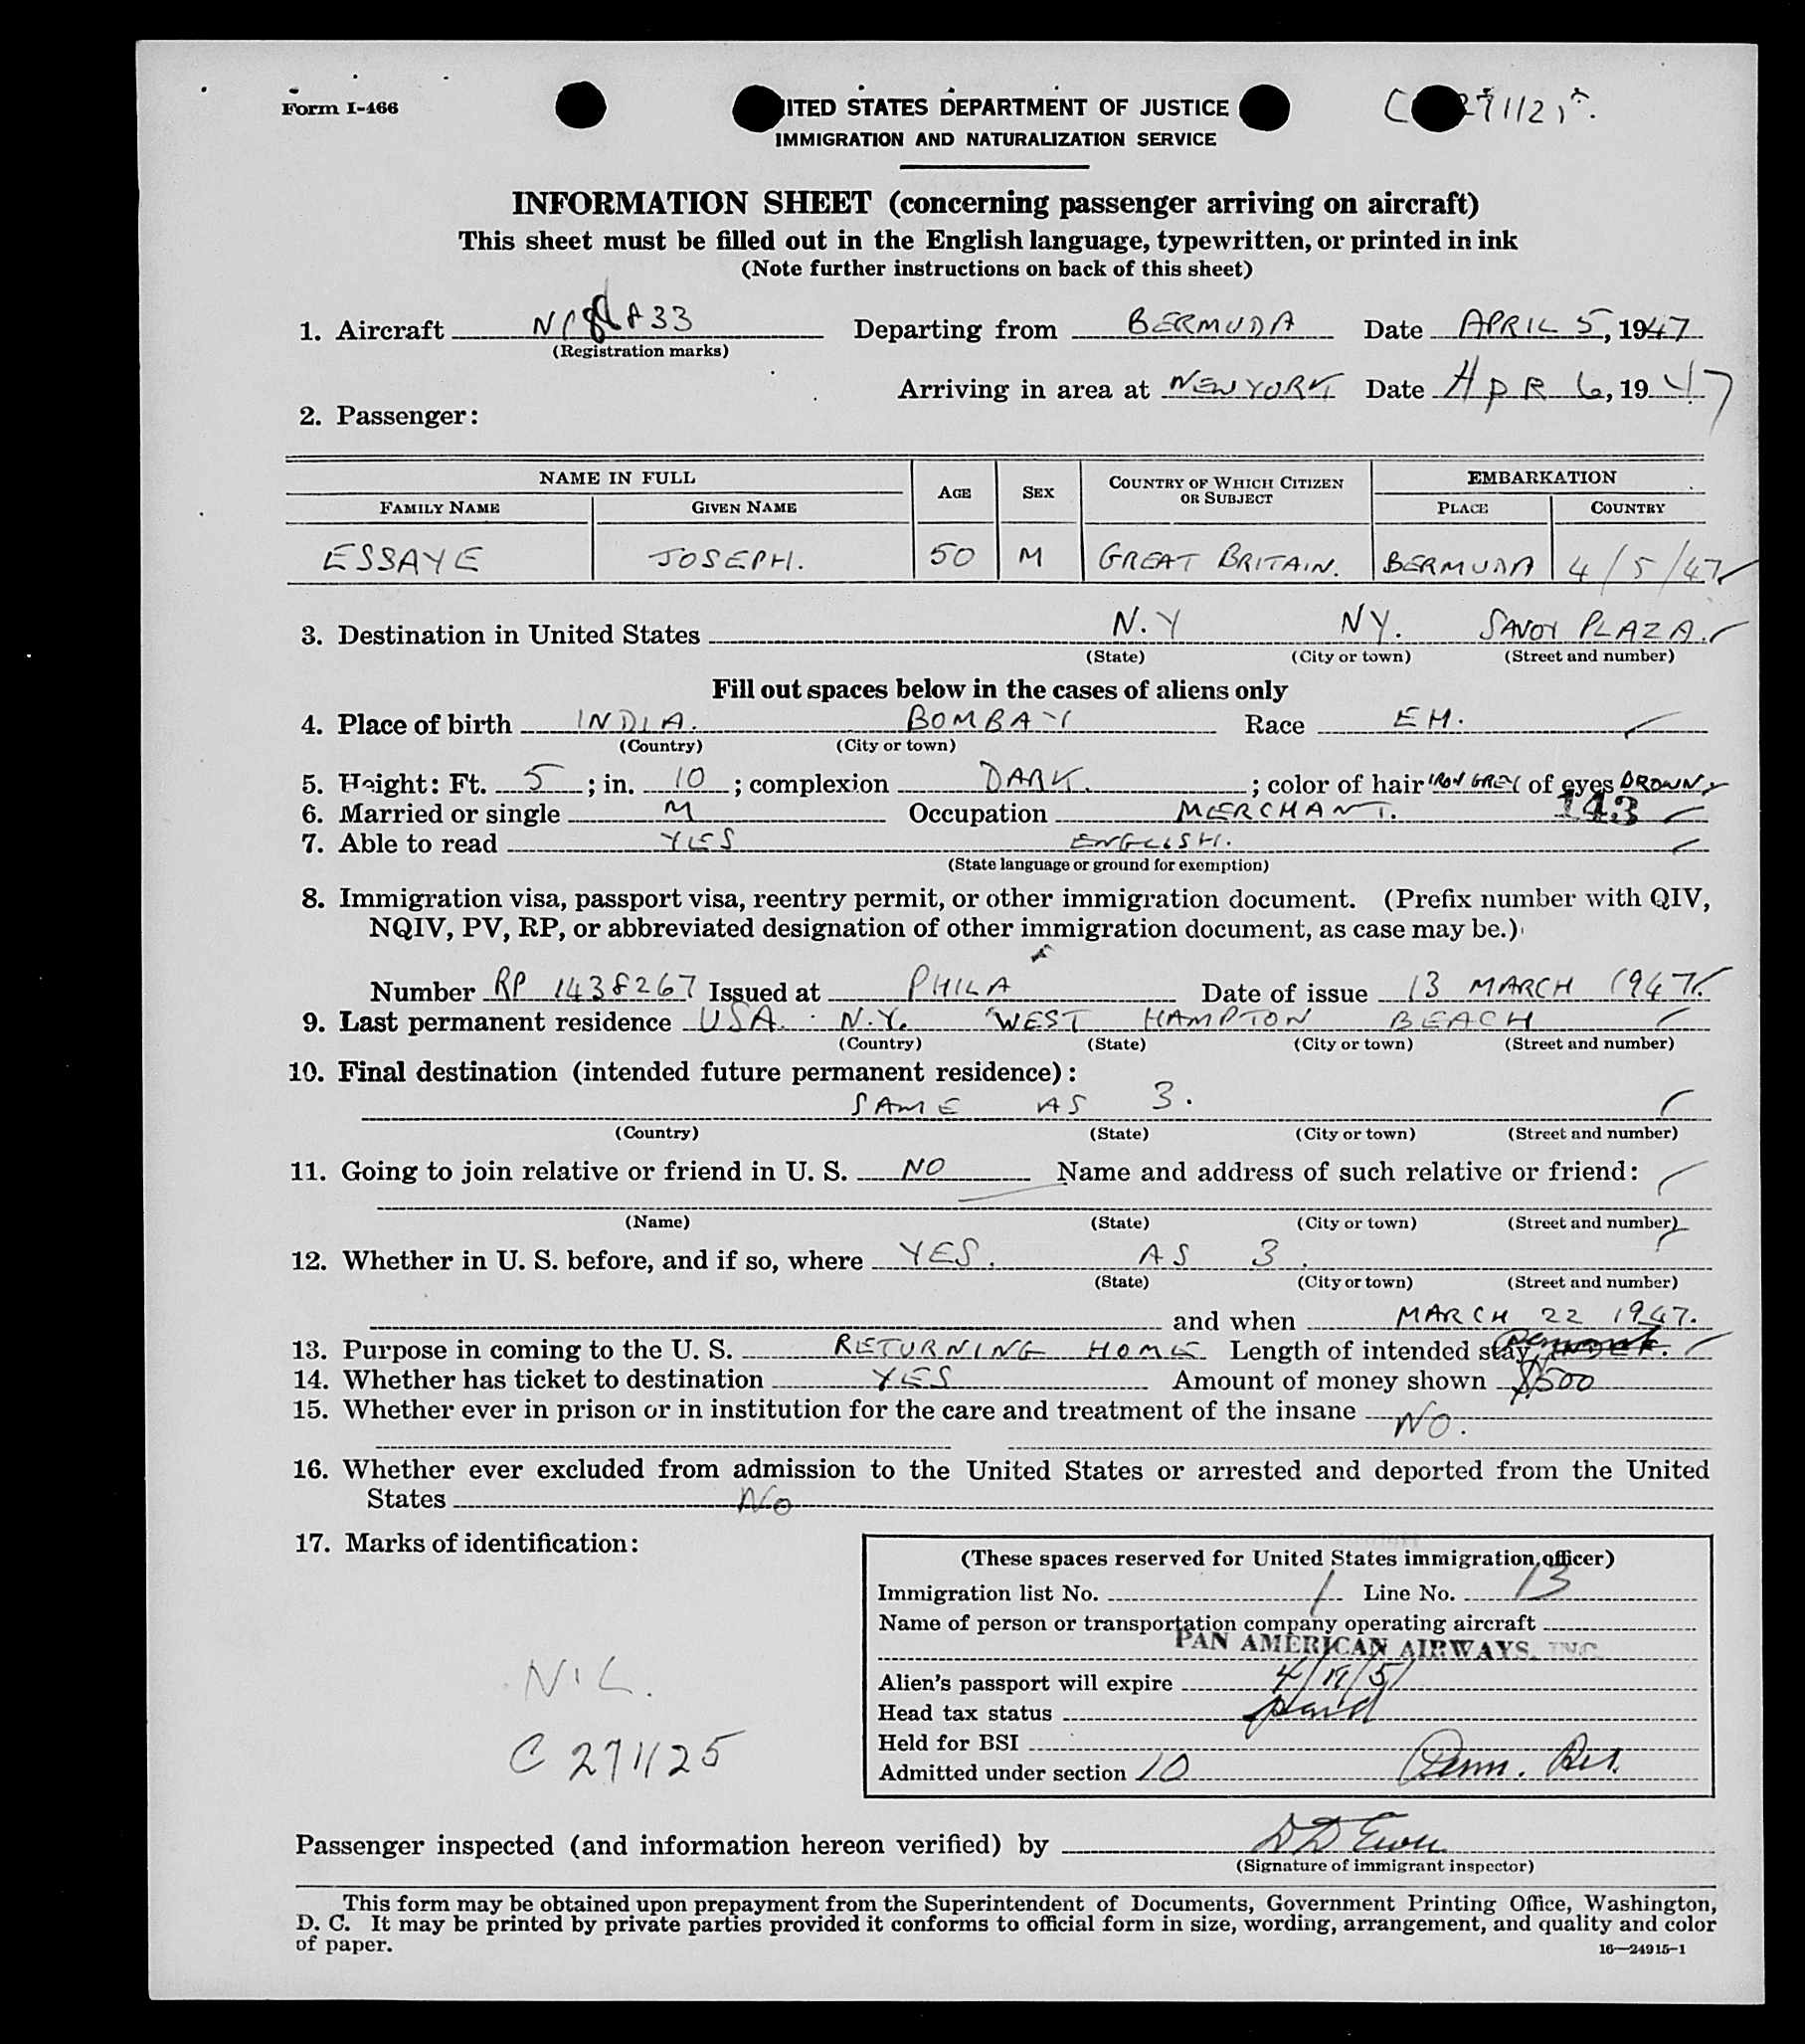 Form I-466
ITED STATES DEPARTMENT OF JUSTICE
IMMIGRATION AND NATURALIZATION SERVICE
INFORMATION SHEET (concerning passenger arriving on aircraft)
This sheet must be filled out in the English language, typewritten, or printed in ink
(Note further instructions on back of this sheet)
1. Aircraft Departing from BERMUDA Date APRIL 5, 1947
(Registration marks)
Arriving in area at NEW YORK Date APR 6, 19 47
2. Passenger:
NAME IN FULL AGE SEX COUNTRY OF WHICH CITIZEN OR SUBJECT EMBARKATION
FAMILY NAME GIVEN NAME PLACE COUNTRY
ESSAYE JOSEPH. 50 M GREAT BRITAIN. BERMUDA 4/5/47
3. Destination in United States N.Y NY. SAVOY PLAZA.
(State) (City or town) (Street and number)
Fill out spaces below in the cases of aliens only
4. Place of birth INDIA. BOMBAY Race EH.
(Country) (City or town)
5. Height: Ft. 5; in. 10; complexion DARK.; color of hair IRON GREY of eyes BROWN
6. Married or single M Occupation MERCHANT. 143
7. Able to read YES ENGLISH.
(State language or ground for exemption)
8. Immigration visa, passport visa, reentry permit, or other immigration document. (Prefix number with QIV,
NQIV, PV, RP, or abbreviated designation of other immigration document, as case may be.)
Number RP 1438267 Issued at PHILA Date of issue 13 MARCH 1947.
9. Last permanent residence USA. N.Y. WEST HAMPTON BEACH
(Country) (State) (City or town) (Street and number)
10. Final destination (intended future permanent residence):
SAME AS 3.
(Country) (State) (City or town) (Street and number)
11. Going to join relative or friend in U. S. NO Name and address of such relative or friend:
(Name) (State) (City or town) (Street and number)
12. Whether in U. S. before, and if so, where YES. AS 3.
(State) (City or town) (Street and number)
and when MARCH 22 1947.
13. Purpose in coming to the U. S. RETURNING HOME Length of intended stay
14. Whether has ticket to destination YES Amount of money shown $500
15. Whether ever in prison or in institution for the care and treatment of the insane NO.
16. Whether ever excluded from admission to the United States or arrested and deported from the United
States NO
17. Marks of identification:
NIL.
C 271125
(These spaces reserved for United States immigration officer)
Immigration list No. 1 Line No. 13
Name of person or transportation company operating aircraft
PAN AMERICAN AIRWAYS, INC.
Alien's passport will expire 4/19/51
Head tax status paid
Held for BSI
Admitted under section 10 Perm. Res.
Passenger inspected (and information hereon verified) by
(Signature of immigrant inspector)
This form may be obtained upon prepayment from the Superintendent of Documents, Government Printing Office, Washington,
D. C. It may be printed by private parties provided it conforms to official form in size, wording, arrangement, and quality and color
of paper.
16—24915-1